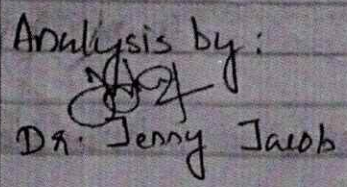 Analysis by:
Dr. Jenny Jacob